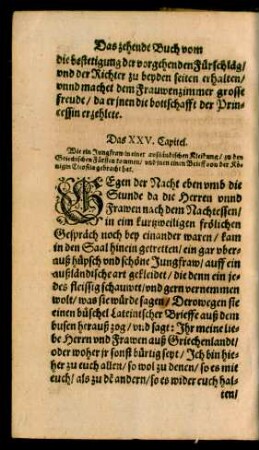 Das zehende Buch vom
die bestetigung der vorgehenden Fürschläg/
vnd der Richter zu beyden seiten erhalten/
vnnd machet dem Frauwenzimmer grosse
freude/ da er jnen die bottschafft der Prin-
cessin erzehlete.
Das XXV. Capitel.
Wie ein Jungfraw in einer außländischen Kleidung/ zu den
Griechischen Fürsten kommen/ vnd jnen einen Brieff von der Kö-
nigin gebracht hat.
GEgen der Nacht eben vmb die
Stunde da die Herren vnnd
Frawen nach dem Nachtessen/
in ein kurtzweiligen frölichen
Gespräch noch bey einander waren/ kam
in den Saal hinein getretten/ ein gar vber-
auß hüpsch vnd schöne Jungfraw/ auff ein
außländische art gekleidet/ die denn ein je-
des fleissig schauwet/ vnd gern vernemmen
wolt/ was sie würde sagen/ Derowegen sie
einen büschel Lateintscher Brieffe auß dem
busen herauß zog/ vnd sagt: Ihr meine lie-
be Herrn vnd Frawen auß Griechenlandt/
oder woher jr sonst bürtig seyt/ Ich bin hie-
her zu euch allen/ so wol zu denen/ so es mit
euch/ als zu dē andern/ so es wider euch hal-
ten/